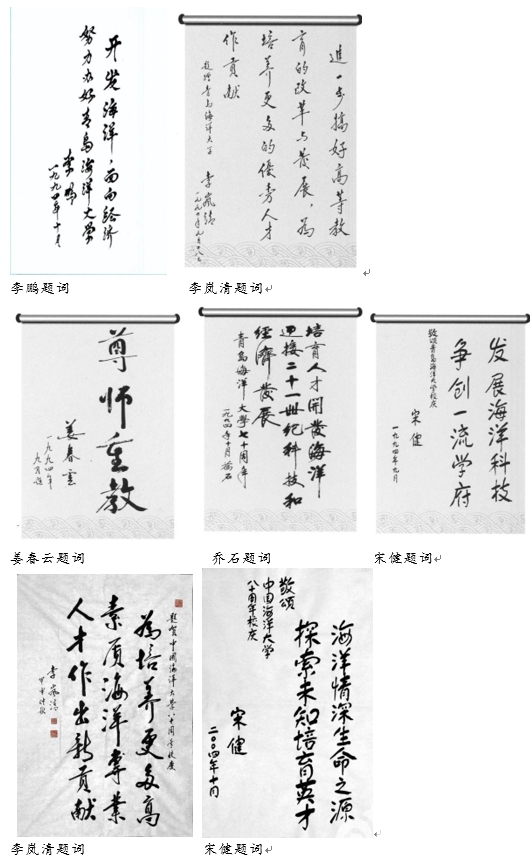 开发海洋，面向经济
努力办好青岛海洋大学
李鹏
一九九四年十月
李鹏题词
進一步搞好高等教
育的改革与發展，為
培养更多的優秀人才
作貢献
題贈青島海洋大学
李嵐清
一九九四年九月
李岚清题词
尊师重教
姜春雲
一九九四年
九月題
姜春云题词
培育人才開發海洋
迎接二十一世纪科技和
經濟發展
青島海洋大學七十周年
一九九四年十月 喬石
乔石题词
发展海洋科技
争创一流学府
敬颂青岛海洋大学校庆
宋健
一九九四年九月
宋健题词
題贺中國海洋大学八十周年校慶
為培养更多高
素质海洋專業
人才作出新贡献
李嵐清
甲申
李岚清题词
海洋情深生命之源
探索未知培育英才
敬颂
中国海洋大学
八十周年校庆
宋健
二〇〇四年十月
宋健题词